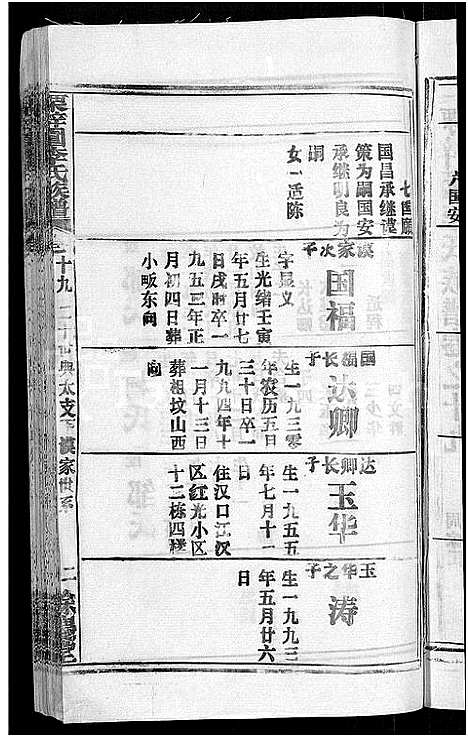 七国廉
国昌承继谟
策为嗣国安
承继明良为
嗣
女一适陈
谟家次子
国福
字显义
生光绪壬寅
年五月廿七
日戌时卒一
九五三年正
月初四日葬
小畈东向
国福长子
达卿
生一九三零
年农历五日
三十日卒一
九九四年十
一月十三日
葬祖坟山西
向
达卿长子
玉华
生一九五五
年七月十一
日
住汉口江汉
区红光小区
十二栋四楼
玉华之子
涛
生一九九三
年五月廿六
日
氏族谱
卷之十九
世典太支下谟家世系
二